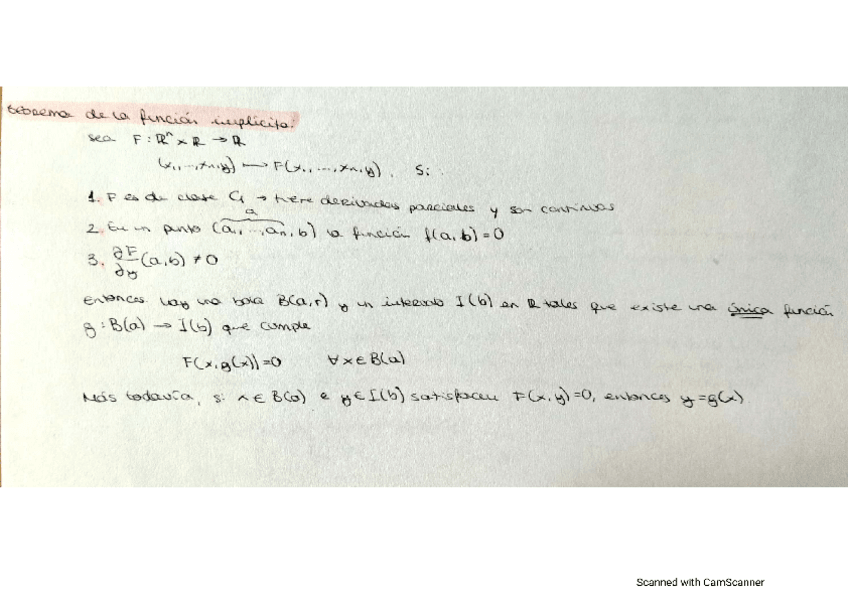 teorema de la función implícita:
sea F: ℝⁿ x ℝ → ℝ
(x₁, ..., xₙ, y) ⟼ F(x₁, ..., xₙ, y). Si:
1. F es de clase C₁ → tiene derivadas parciales y son continuas
a
2. En un punto (a₁, ..., aₙ, b) la función f(a, b) = 0
3. ∂F/∂y (a, b) ≠ 0
Entonces hay una bola B(a, r) y un intervalo I(b) en ℝ tales que existe una única función
g: B(a) → I(b) que cumple
F(x, g(x)) = 0 ∀x ∈ B(a)
Más todavía, si x ∈ B(a) e y ∈ I(b) satisfacen F(x, y) = 0, entonces y = g(x)
Scanned with CamScanner